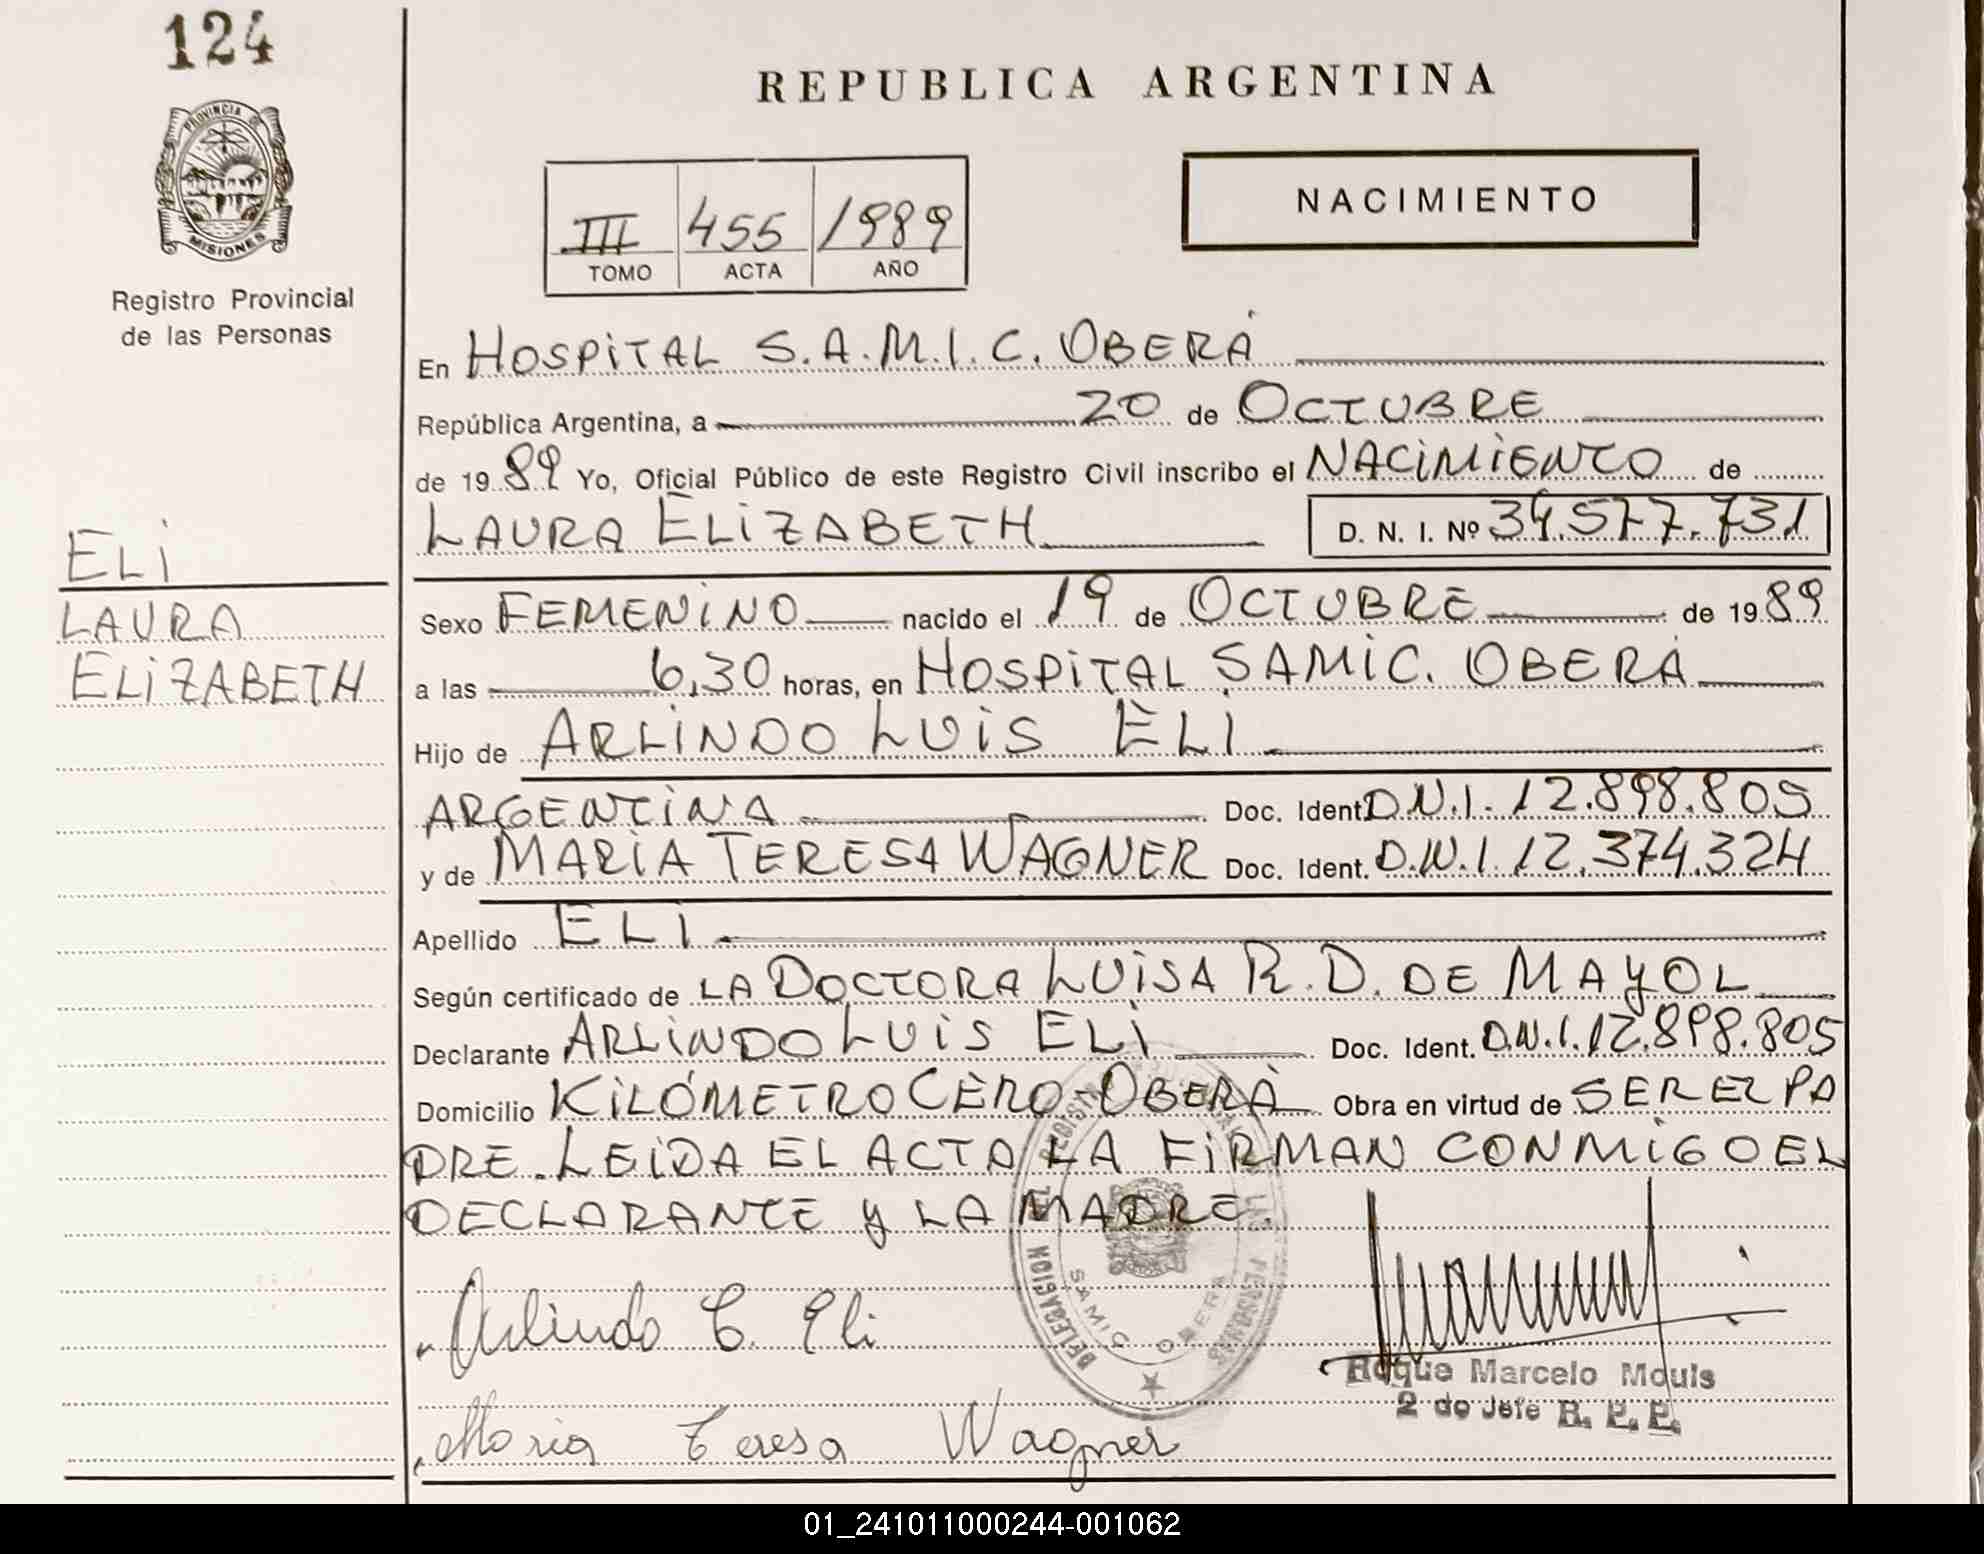 124
REPUBLICA ARGENTINA
PROVINCIA DE
MISIONES
Registro Provincial
de las Personas
III 455 1989
TOMO ACTA AÑO
NACIMIENTO
En HOSPITAL S.A.M.I.C. OBERÁ
República Argentina, a 20 de OCTUBRE
de 1989 Yo, Oficial Público de este Registro Civil inscribo el NACIMIENTO de
LAURA ELIZABETH D. N. I. Nº 34.577.731
ELI
LAURA
ELIZABETH
Sexo FEMENINO nacido el 19 de OCTUBRE de 1989
a las 6,30 horas, en HOSPITAL SAMIC. OBERÁ
Hijo de ARLINDO LUIS ELI
ARGENTINA Doc. Ident. D.N.I. 12.898.805
y de MARIA TERESA WAGNER Doc. Ident. D.N.I. 12.374.324
Apellido ELI
Según certificado de LA DOCTORA LUISA R. D. DE MAYOL
Declarante ARLINDO LUIS ELI Doc. Ident. D.N.I. 12.898.805
Domicilio KILÓMETRO CERO-OBERÁ Obra en virtud de SER EL PA
DRE. LEIDA EL ACTA LA FIRMAN CONMIGO EL
DECLARANTE Y LA MADRE.
DELEGACION DEL REGISTRO PROVINCIAL DE LAS PERSONAS
SAMIC OBERA
Arlindo L. Eli
Roque Marcelo Mouls
2 do Jefe R. P. P.
Maria Teresa Wagner
01_241011000244-001062